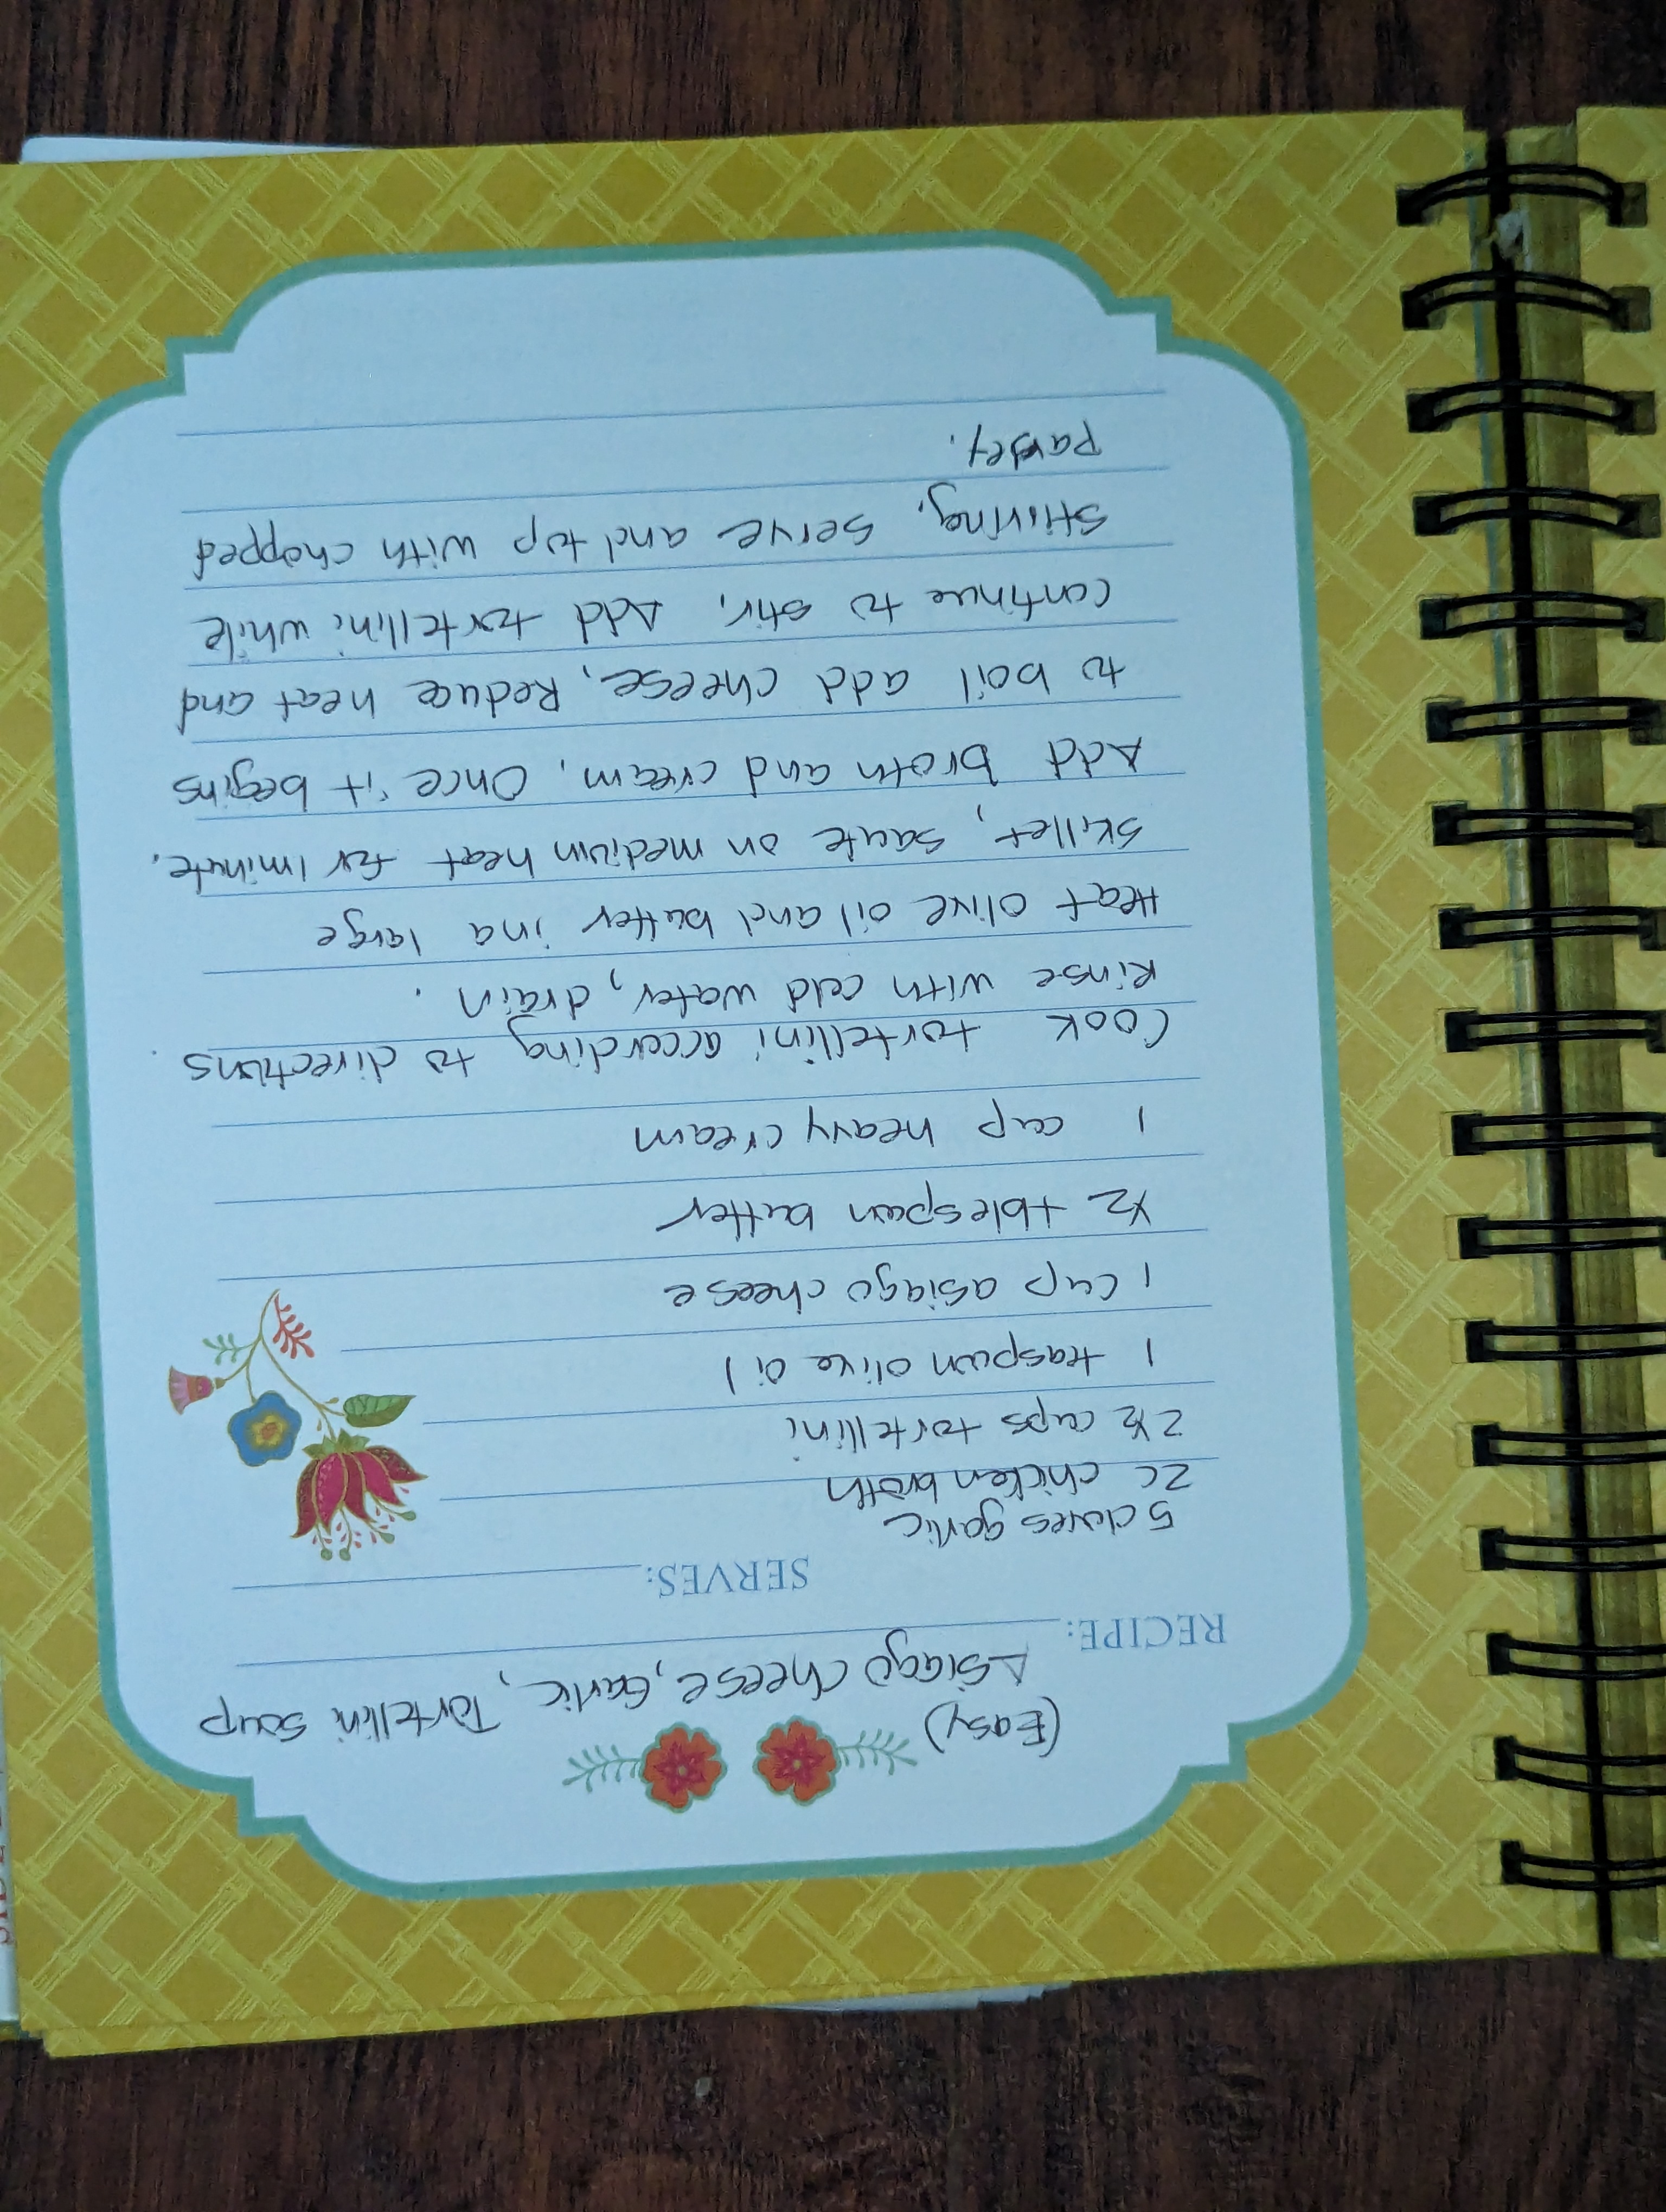 (Easy)
Asiago Cheese, Garlic, Tortellini Soup
RECIPE:
SERVES:
5 cloves garlic
2c chicken broth
2½ cups tortellini
1 teaspoon olive oil
1 cup asiago cheese
½ tblespoon butter
1 cup heavy cream
Cook tortellini according to directions
Rinse with cold water, drain.
Heat olive oil and butter in a large
skillet, saute on medium heat for 1 minute.
Add broth and cream. Once it begins
to boil add cheese, Reduce heat and
continue to stir. Add tortellini while
stirring. Serve and top with chopped
parsley.